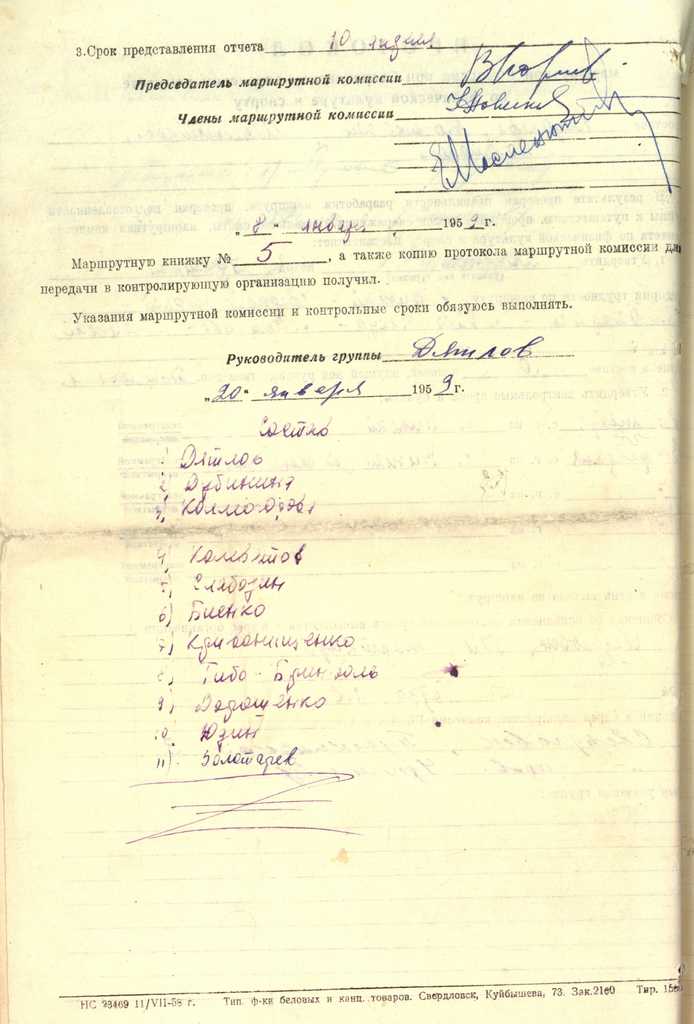 3.Срок представления отчета 10 апреля
Председатель маршрутной комиссии
Члены маршрутной комиссии
„8“ января 1959 г.
Маршрутную книжку № 5, а также копию протокола маршрутной комиссии для
передачи в контролирующую организацию получил.
Указания маршрутной комиссии и контрольные сроки обязуюсь выполнять.
Руководитель группы Дятлов
„20“ января 1959 г.
Состав
1) Дятлов
2) Дубинина
3) Колмогорова
4) Колеватов
5) Слободин
6) Биенко
7) Кривонищенко
8) Тибо-Бриньоль
9) Дорошенко
10 Юдин
11) Золотарев
НС 23469 11/VII-58 г. Тип. ф-ки беловых и канц. товаров. Свердловск, Куйбышева, 73. Зак. Тир.